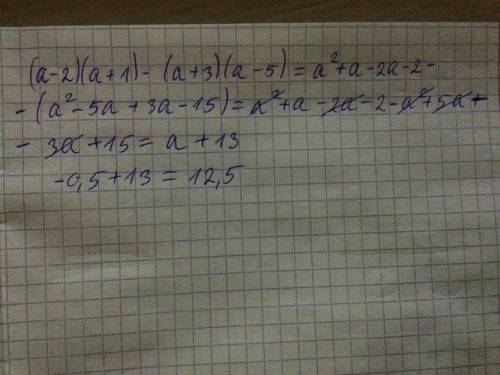 (a-2)(a+1)- (a+3)(a-5) = a²+a-2a-2-
-(a²-5a+3a-15)= a²+a-2a-2-a²+5a+
- 3a+15= a+13
-0,5+13 = 12,5